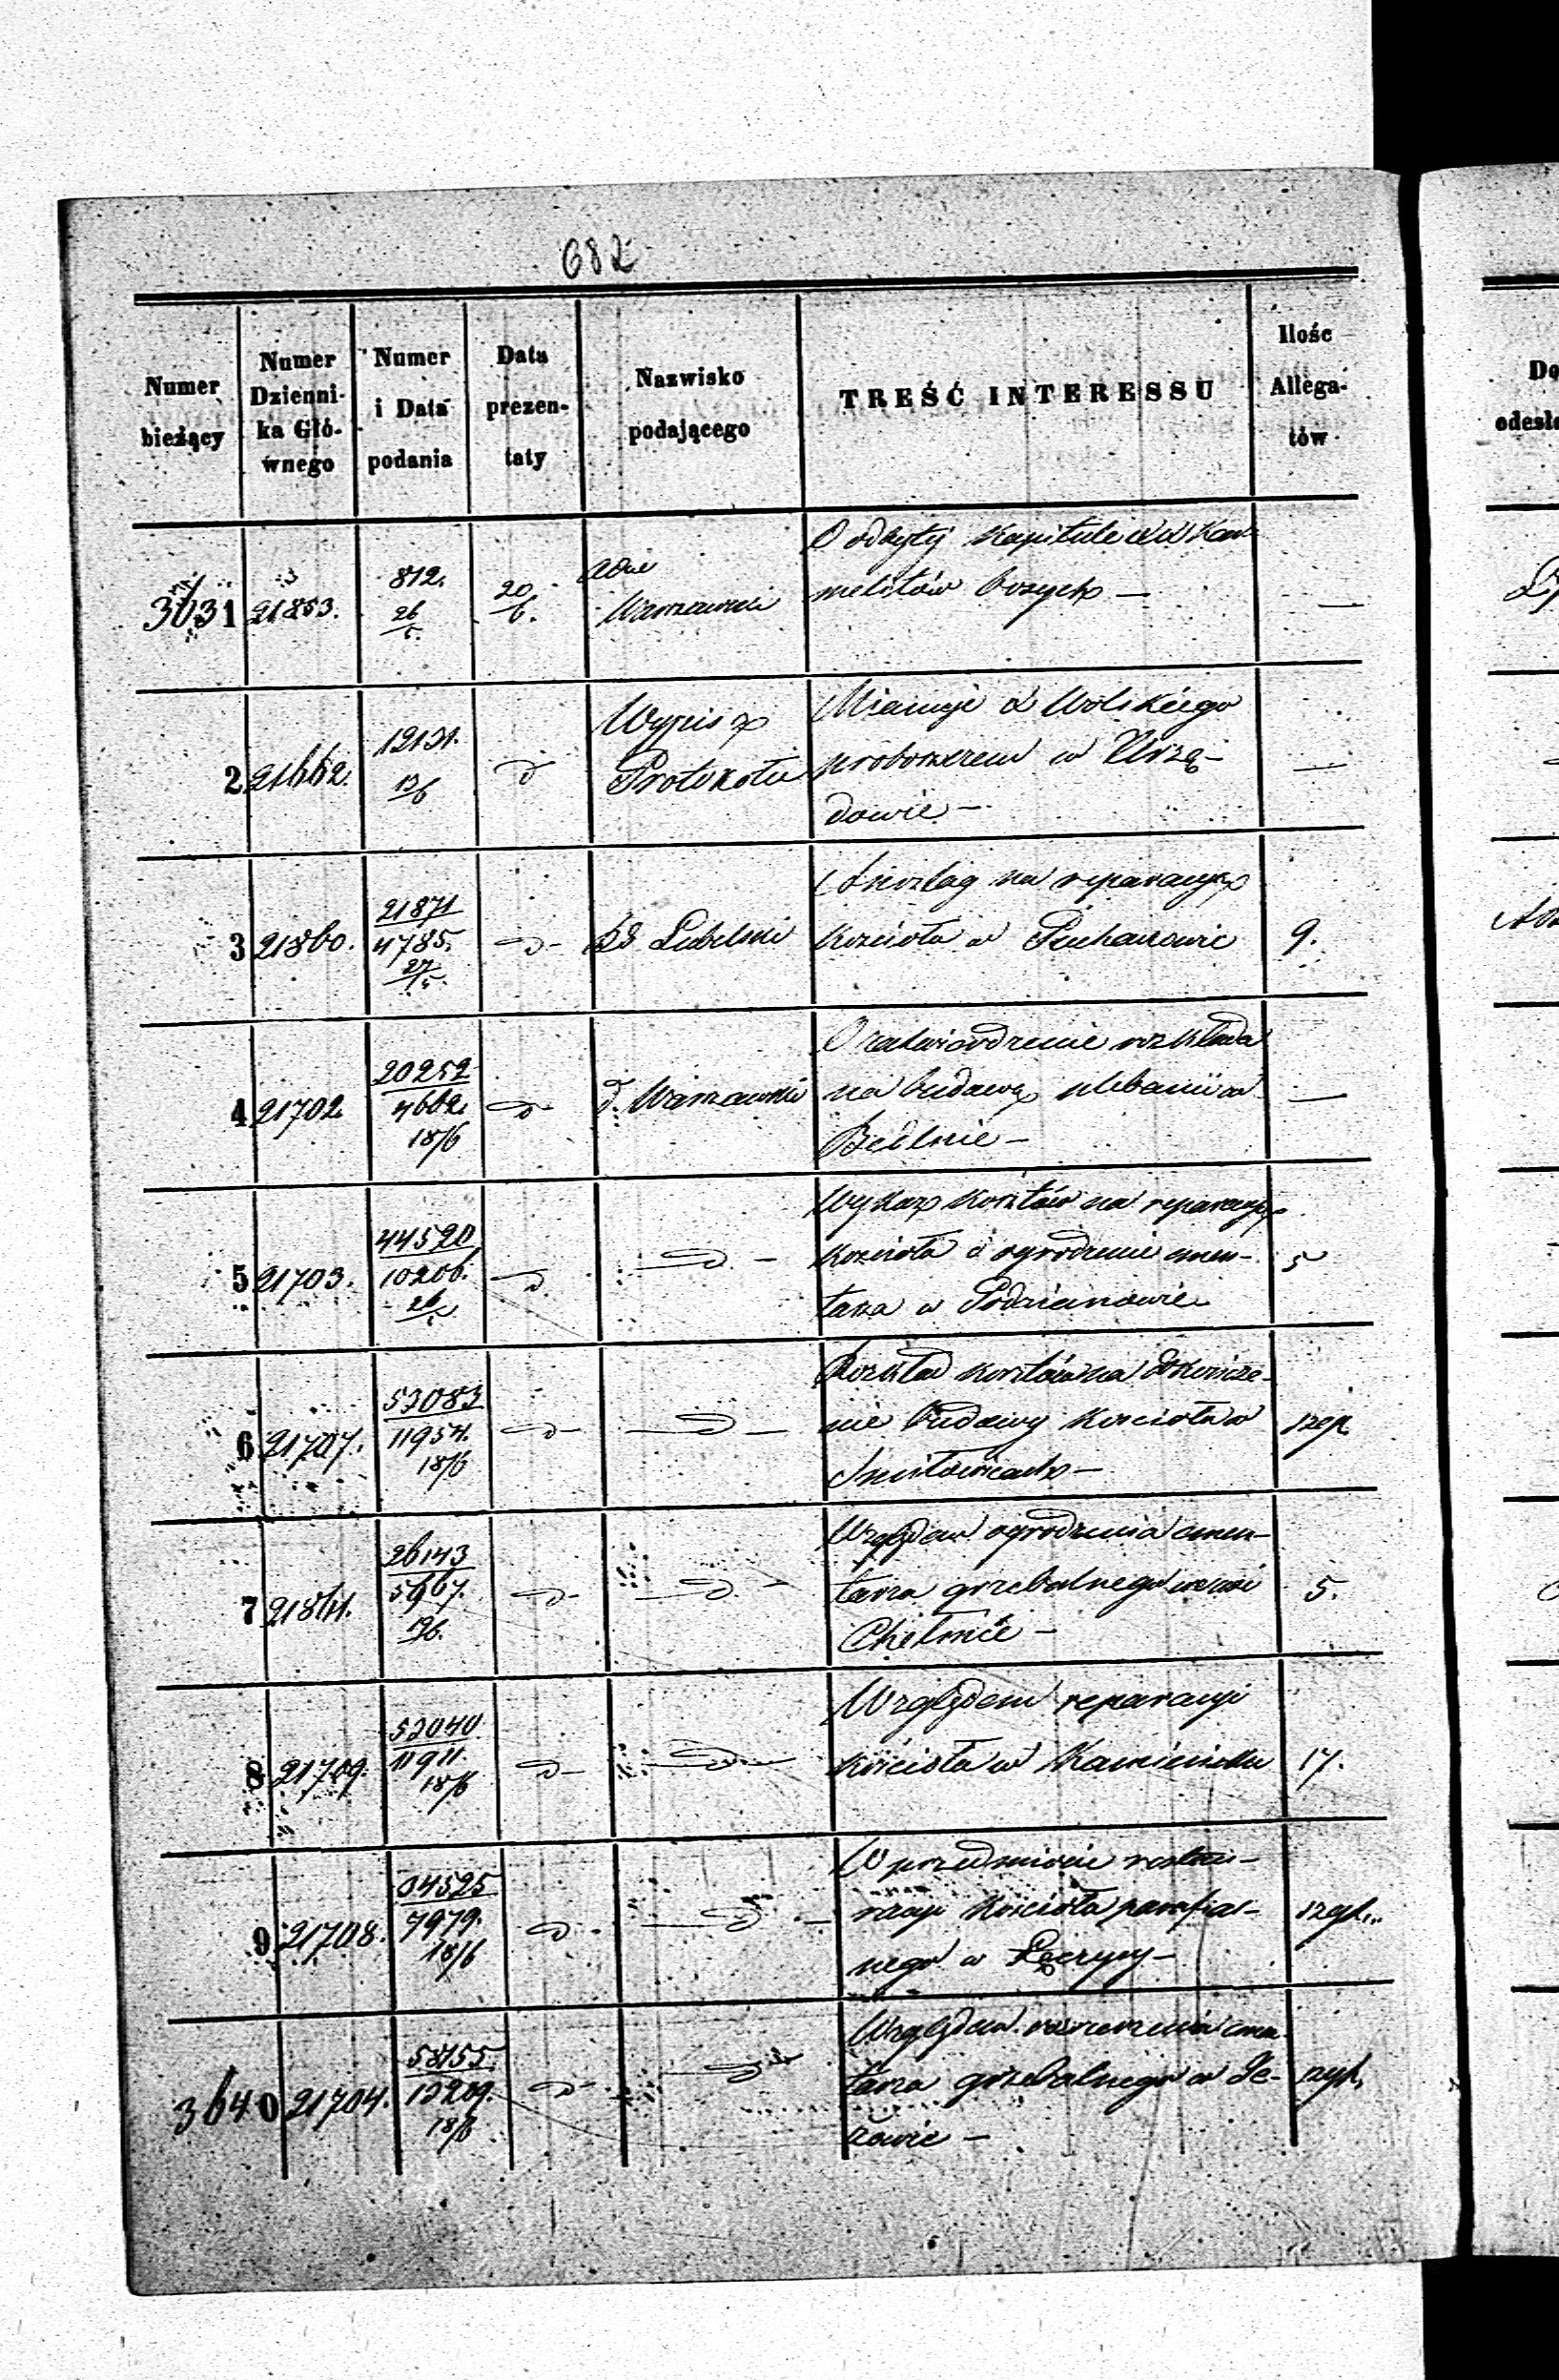 682
Numer bieżący | Numer Dzienni- ka Głó- wnego | Numer i Data podania | Data prezen- taty | Nazwisko podającego | TREŚĆ INTERESSU | Ilośc Allega- tów
3631 | 21853. | 812. 26/5. | 20/6. | Warszawski | O odbytej Kapitule XX Kar-
melitów bosych —
2 | 21662. | 12131. 13/6 | d | Wypis z
Protokołu | Mianuje X Wolskiego
proboszczem w Urzę-
dowie —
3 | 21860. | 21871 4785. 27/5. | d | Lubelski | Anszlag na reparacyę
Kościoła w Puchaczowie | 9.
4 | 21702 | 20252 4662. 18/6 | d | d. Warszawski | O zatwierdzenie rozkładu
na budowę plebanii w
Bedlnie — | —
5 | 21703. | 44520 10206. 26/5 | d | d | Wykaz kosztów na reparacyę
Kościoła i ogrodzenie cmen-
tarza w Podzianowie | 5
6 | 21707. | 53083 11954. 18/6 | d | d | Rozkład kosztów na dokończe-
nie budowy Kościoła w
7 | 26143 5667. | d | d | Względem ogrodzenia cmen-
tarza grzebalnego we wsi
Chełmie — | 5.
8 | 21709. | 53040 11911. 18/6 | d | d | Względem reparacyi
Kościoła w | 17.
9 | 21708. | 34525 7979. 18/6 | d | d | W przedmiocie restau-
racyi Kościoła parafial-
nego w Łęczycy —
3640 | 21704. | 58155 13209. 18/6 | d | d | Względem cmen-
tarza grzebalnego w Je-
żowie —
Do
odesła